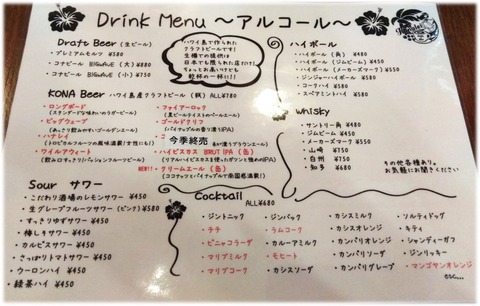 Drink Menu ～アルコール～
Draft Beer (生ビール)
・プレミアムモルツ ¥580
・コナビール BIGWAVE (大) ¥880
・コナビール BIGWAVE (小) ¥750
ハワイ島で作られた
クラフトビールです！
生樽での提供は
日本でも限られた店だけ！
ちょっとお高いけども
乾杯の一杯に！！
KONA Beer ハワイ島産クラフトビール (瓶) ALL¥780
・ロングボード
(スタンダードな味わいのラガービール)
・ビッグウェーブ
(あっさり飲みやすいゴールデンエール)
・ハナレイ
(トロピカルフルーツの風味満載！女性にも)
・ワイルアウィート
(飲み口すっきりパッションフルーツビール)
・ファイアーロック
(黒ビールテイストのペールエール)
・ゴールドクリフ
(パイナップルの香り漂うIPA)
今季終売
・ハイビスカス BRUT IPA (缶)
(リアルハイビスカスを使ったガツンと強めのIPA)
NEW!! ・クリームエール (缶)
(ココナッツとパイナップルで南国感満載！)
ハイボール
・ハイボール (角) ¥480
・ハイボール (ジムビーム) ¥450
・ハイボール (メーカーズマーク) ¥550
・ジンジャーハイボール ¥480
・コークハイ ¥480
・スペアミントハイ ¥580
Whisky
・サントリー角 ¥480
・ジムビーム ¥450
・メーカーズマーク ¥550
・山崎 ¥750
・白州 ¥750
・知多 ¥680
その他各種あり。
お気軽にお聞きください！
Sour サワー
・こだわり酒場のレモンサワー ¥450
・生グレープフルーツサワー (ピンク) ¥580
・すっきりゆずサワー ¥450
・梅しそサワー ¥450
・カルピスサワー ¥450
・さっぱりトマトサワー ¥450
・ウーロンハイ ¥450
・緑茶ハイ ¥450
Cocktail ALL¥680
・ジントニック
・チチ
・ピニャコラーダ
・マリブミルク
・マリブコーク
・ジンバック
・ラムコーク
・カルーアミルク
・モヒート
・カシスソーダ
・カシスミルク
・カシスオレンジ
・カンパリオレンジ
・カンパリソーダ
・カンパリグレープ
・ソルティドッグ
・キティ
・シャンディーガフ
・ジンリッキー
・マンゴヤンオレンジ
etc...